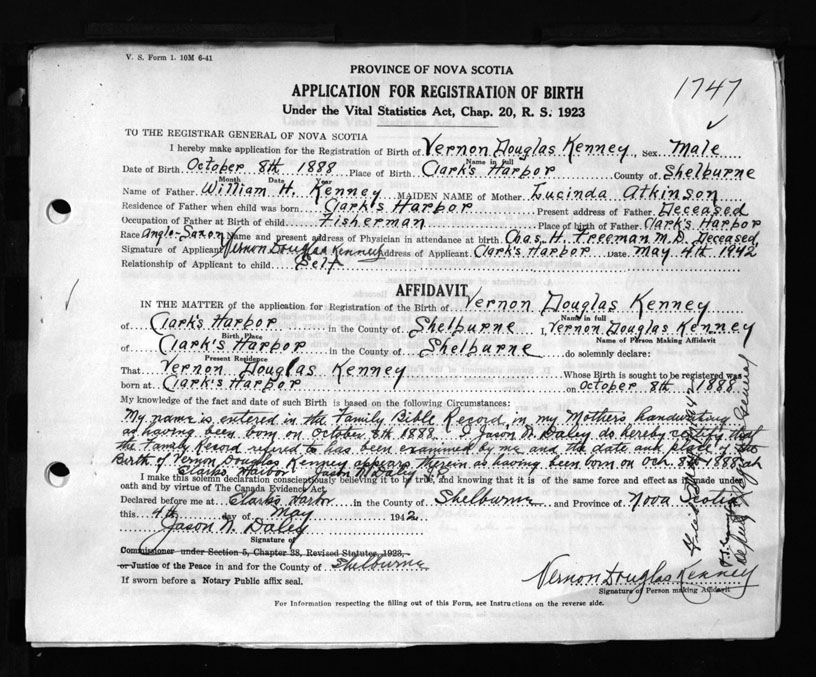 V. S. Form 1. 10M 6-41
PROVINCE OF NOVA SCOTIA
1747
APPLICATION FOR REGISTRATION OF BIRTH
Under the Vital Statistics Act, Chap. 20, R. S. 1923
TO THE REGISTRAR GENERAL OF NOVA SCOTIA
I hereby make application for the Registration of Birth of Vernon Douglas Kenney, Sex Male
Name in full
Date of Birth October 8th 1888 Place of Birth Clark's Harbor County of Shelburne
Month Date Year
Name of Father William H. Kenney MAIDEN NAME of Mother Lucinda Atkinson
Residence of Father when child was born Clark's Harbor Present address of Father Deceased
Occupation of Father at Birth of child Fisherman Place of birth of Father Clark's Harbor
Race Anglo-Saxon Name and present address of Physician in attendance at birth Chas. H. Freeman M.D. Deceased
Signature of Applicant Vernon Douglas Kenney Address of Applicant Clark's Harbor Date May 4th 1942
Relationship of Applicant to child Self
AFFIDAVIT
IN THE MATTER of the application for Registration of the Birth of Vernon Douglas Kenney
Name in full
of Clark's Harbor in the County of Shelburne I, Vernon Douglas Kenney
Birth Place Name of Person Making Affidavit
of Clark's Harbor in the County of Shelburne do solemnly declare:
Present Residence
That Vernon Douglas Kenney Whose Birth is sought to be registered was
born at Clark's Harbor on October 8th 1888
My knowledge of the fact and date of such Birth is based on the following Circumstances:
My name is entered in the Family Bible Record, in my Mother's handwriting
as having been born on October 8th 1888. I Jason M. Daley do hereby certify that
the Family Record referred to has been examined by me and the date and place of the
Birth of Vernon Douglas Kenney appears therein as having been born on Oct. 8th 1888 at
Clarks Harbor. Jason M Daley
I make this solemn declaration conscientiously believing it to be true, and knowing that it is of the same force and effect as if made under
oath and by virtue of The Canada Evidence Act.
Declared before me at Clarks Harbor in the County of Shelburne and Province of Nova Scotia
this 4th day of May 1942
Jason M. Daley
Signature of
Commissioner under Section 5, Chapter 38, Revised Statutes, 1923,
or Justice of the Peace in and for the County of Shelburne
If sworn before a Notary Public affix seal.
Vernon Douglas Kenney
Signature of Person making Affidavit
For Information respecting the filling out of this Form, see Instructions on the reverse side.
1942
Deputy Registrar General